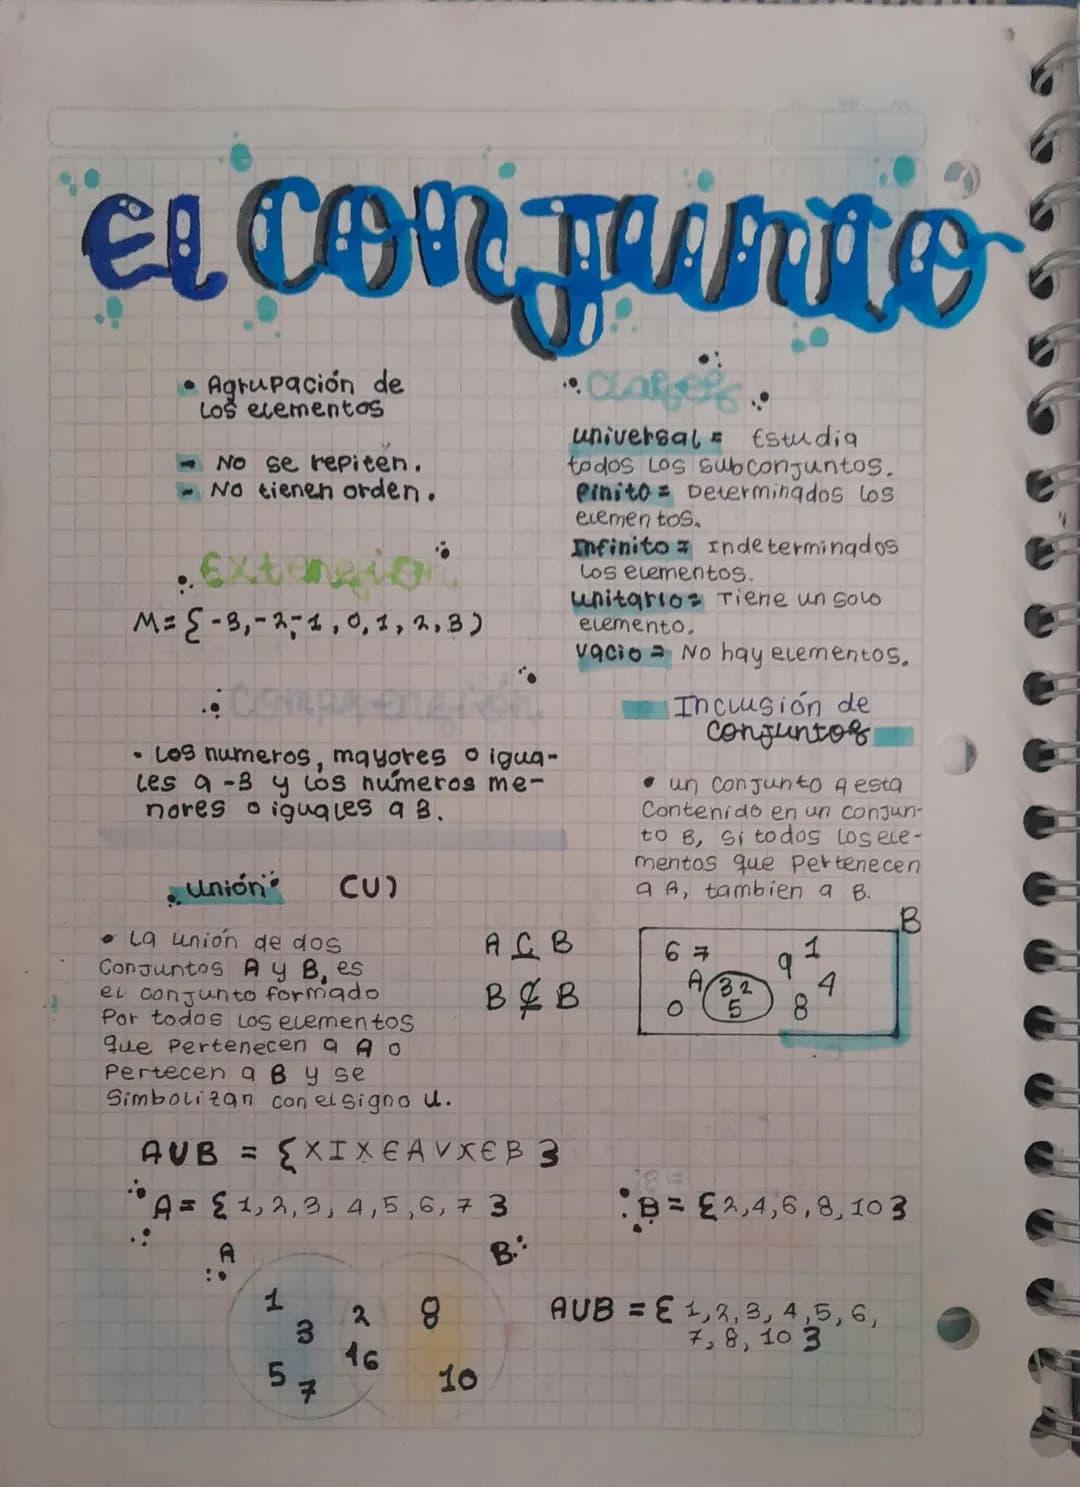 El Conjunto
• Agrupación de
Los elementos
- No se repiten.
- No tienen orden.
Extensión
M= {-3,-2,-1,0,1,2,3)
Comprensión
• Los numeros, mayores o igua-
les a -3 y los números me-
nores o iguales a 3.
Clases
universal = Estudia
todos Los subconjuntos.
Finito = Determinados los
elementos.
Infinito = Indeterminados
los elementos.
unitario= Tiene un solo
elemento.
vacio = No hay elementos.
Inclusión de
conjuntos
• un conjunto A esta
Contenido en un conjun-
to B, si todos los ele-
mentos que Pertenecen
a A, tambien a B.
B
6 7 9 1
A 3 2 4
0 5 8
Unión (U)
• La unión de dos
Conjuntos A y B, es
el conjunto formado
Por todos los elementos
que Pertenecen a A o
Pertecen a B y se
Simbolizan con el signo U.
A ⊆ B
B ⊄ B
AUB = {XIX∈AVX∈B}
A= {1,2,3,4,5,6,7}
B= {2,4,6,8,10}
A B
1 2 8
3
46
5 7 10
AUB = {1,2,3,4,5,6,
7,8,10}